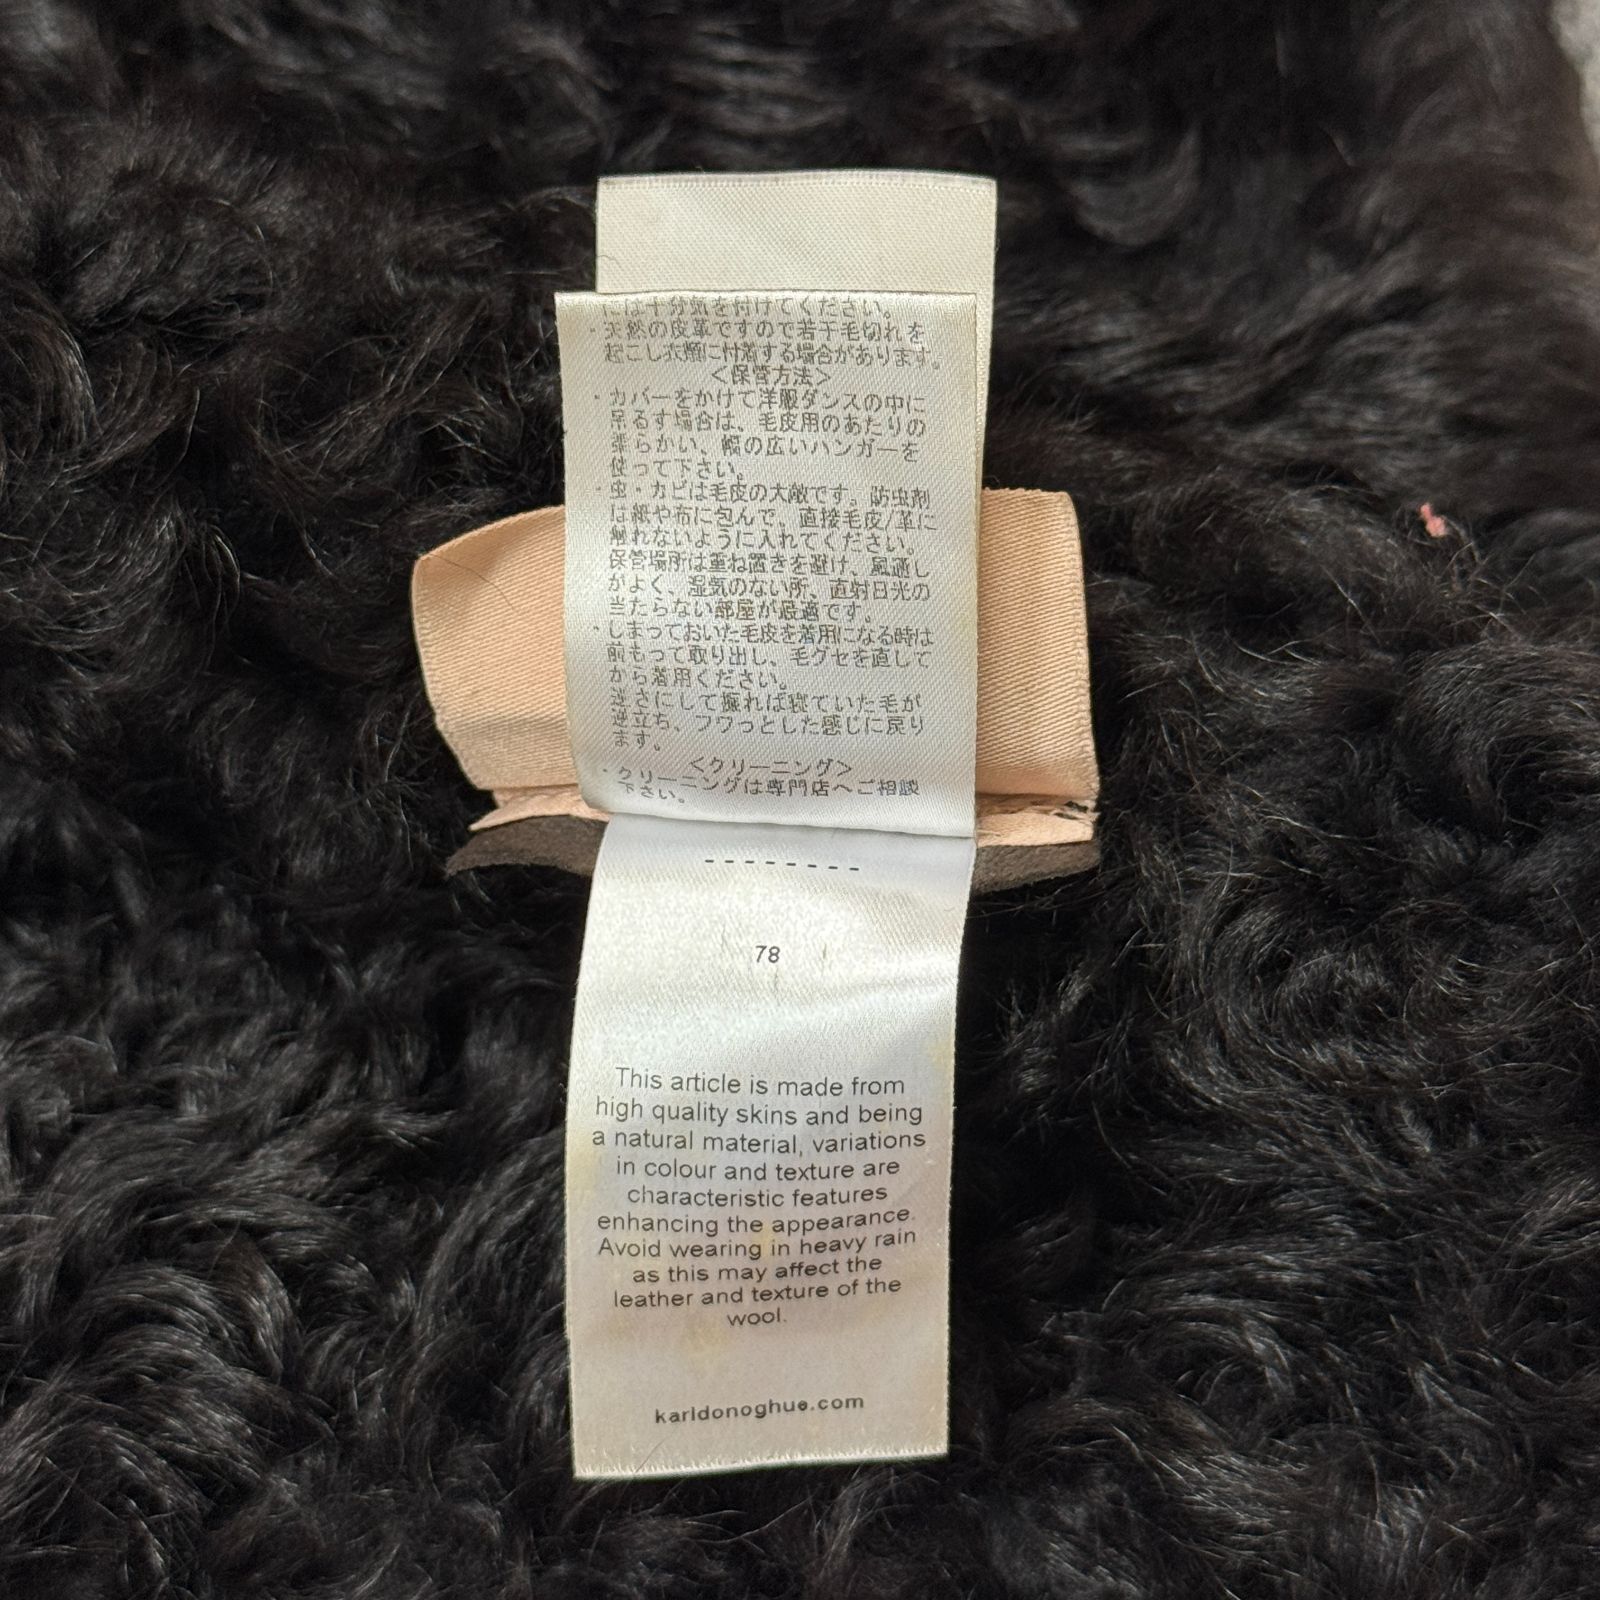 には十分気を付けてください。
・天然の皮革ですので若干毛切れを
起こし衣類に付着する場合があります。
＜保管方法＞
・カバーをかけて洋服ダンスの中に
吊るす場合は、毛皮用のあたりの
柔らかい、幅の広いハンガーを
使って下さい。
・虫・カビは毛皮の大敵です。防虫剤
は紙や布に包んで、直接毛皮/革に
触れないように入れてください。
保管場所は重ね置きを避け、風通し
がよく、湿気のない所、直射日光の
当たらない部屋が最適です。
・しまっておいた毛皮を着用になる時は
前もって取り出し、毛グセを直して
から着用ください。
逆さにして振れば寝ていた毛が
逆立ち、フワっとした感じに戻り
ます。
＜クリーニング＞
・クリーニングは専門店へご相談
下さい。
--------
78
This article is made from
high quality skins and being
a natural material, variations
in colour and texture are
characteristic features
enhancing the appearance.
Avoid wearing in heavy rain
as this may affect the
leather and texture of the
wool.
karldonoghue.com